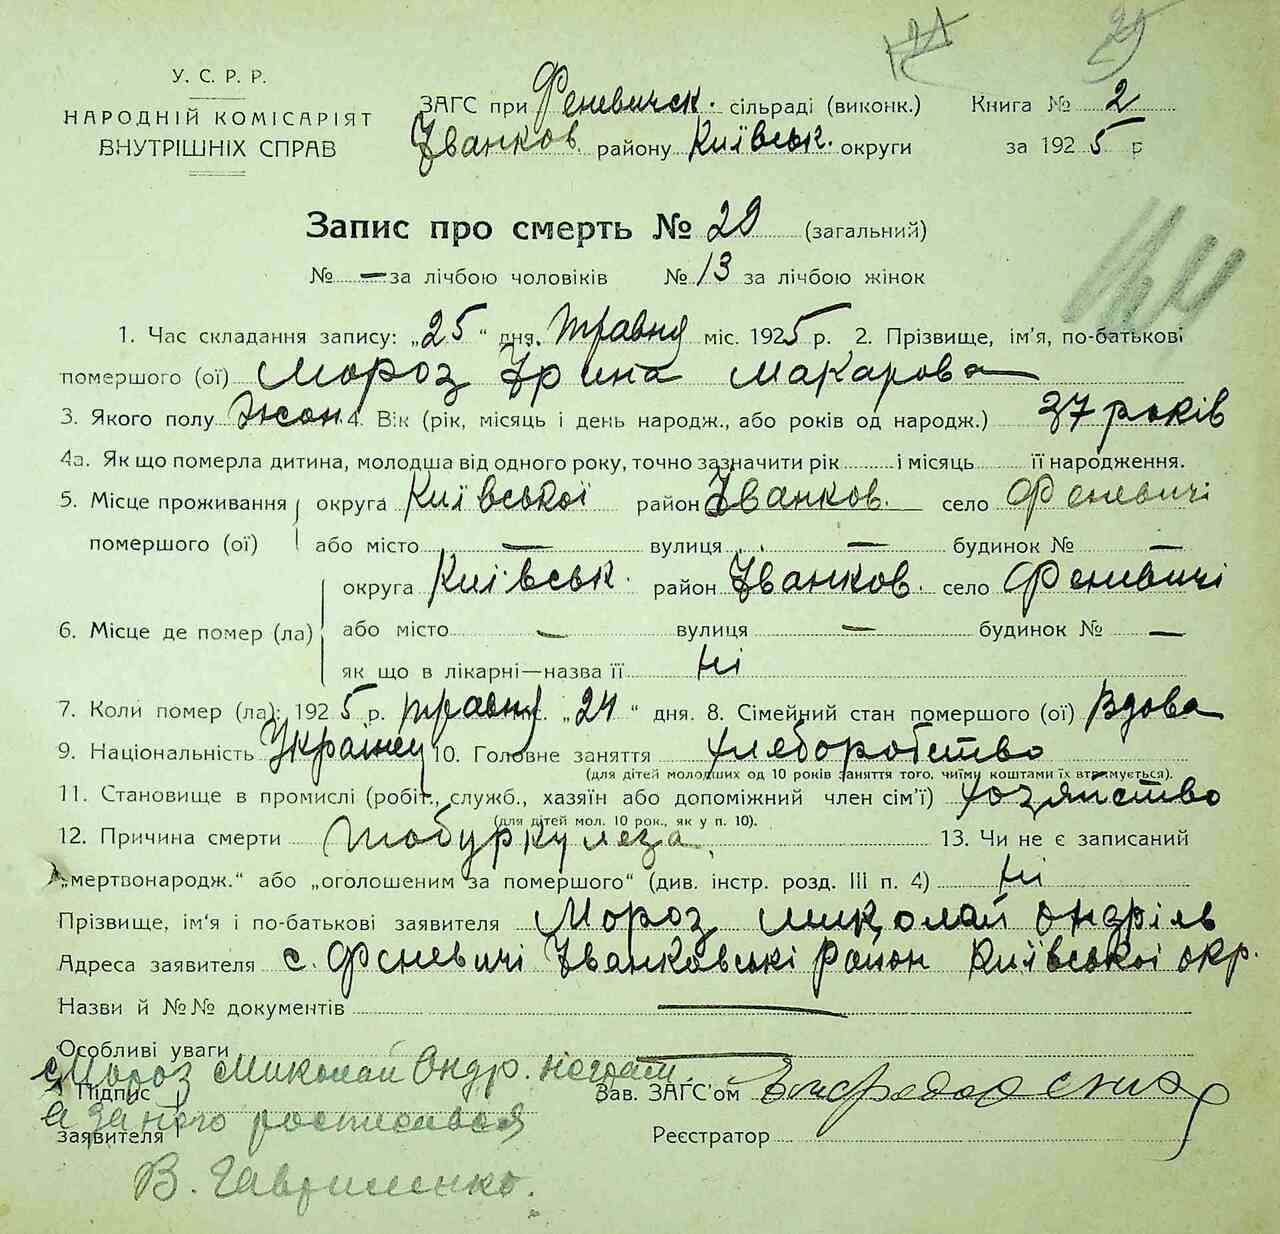 У. С. Р. Р.
НАРОДНІЙ КОМІСАРІЯТ
ВНУТРІШНІХ СПРАВ
ЗАГС при Феневичск. сільраді (виконк.) Книга № 2
Іванков. району Київськ. округи за 1925 р
Запис про смерть № 29 (загальний)
№ — за лічбою чоловіків № 13 за лічбою жінок
1. Час складання запису: „25“ дня. травня міс. 1925 р. 2. Прізвище, ім'я, по-батькові
помершого (ої) Мороз Ірина Макарова
3. Якого полу жон. 4. Вік (рік, місяць і день народж., або років од народж.) 37 років
4а. Як що померла дитина, молодша від одного року, точно зазначити рік і місяць її народження.
5. Місце проживання округа Київської район Іванков. село Феневичі
помершого (ої) або місто — вулиця — будинок № —
округа Київськ. район Іванков. село Феневичі
6. Місце де помер (ла) або місто — вулиця — будинок № —
як що в лікарні—назва її ні
7. Коли помер (ла): 1925 р. травня „24“ дня. 8. Сімейний стан помершого (ої) Вдова
9. Національність 10. Головне заняття хлеборобство
(для дітей молодших од 10 років заняття того, чиїми коштами їх втримується).
11. Становище в промислі (робіт., служб., хазяїн або допоміжний член сім'ї) хозяйство
(для дітей мол. 10 рок., як у п. 10).
12. Причина смерти тобуркулеза. 13. Чи не є записаний
„мертвонародж.“ або „оголошеним за помершого“ (див. інстр. розд. III п. 4) ні
Прізвище, ім'я і по-батькові заявителя Мороз Миколай
Адреса заявителя с. Феневичі Іванковські район Київської окр.
Назви й №№ документів —
Особливі уваги —
Мороз Миколай Ондр.
Підпис Зав. ЗАГС'ом
а за него росписався
заявителя Реєстратор
В. Гавриленко.